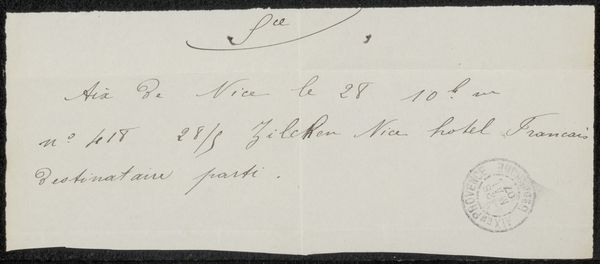 Sce
Aix de Nice le 28 10h m
no 418 28/5 Zilcken Nice hotel Francais
destinataire parti.
AIX EN PROVENCE